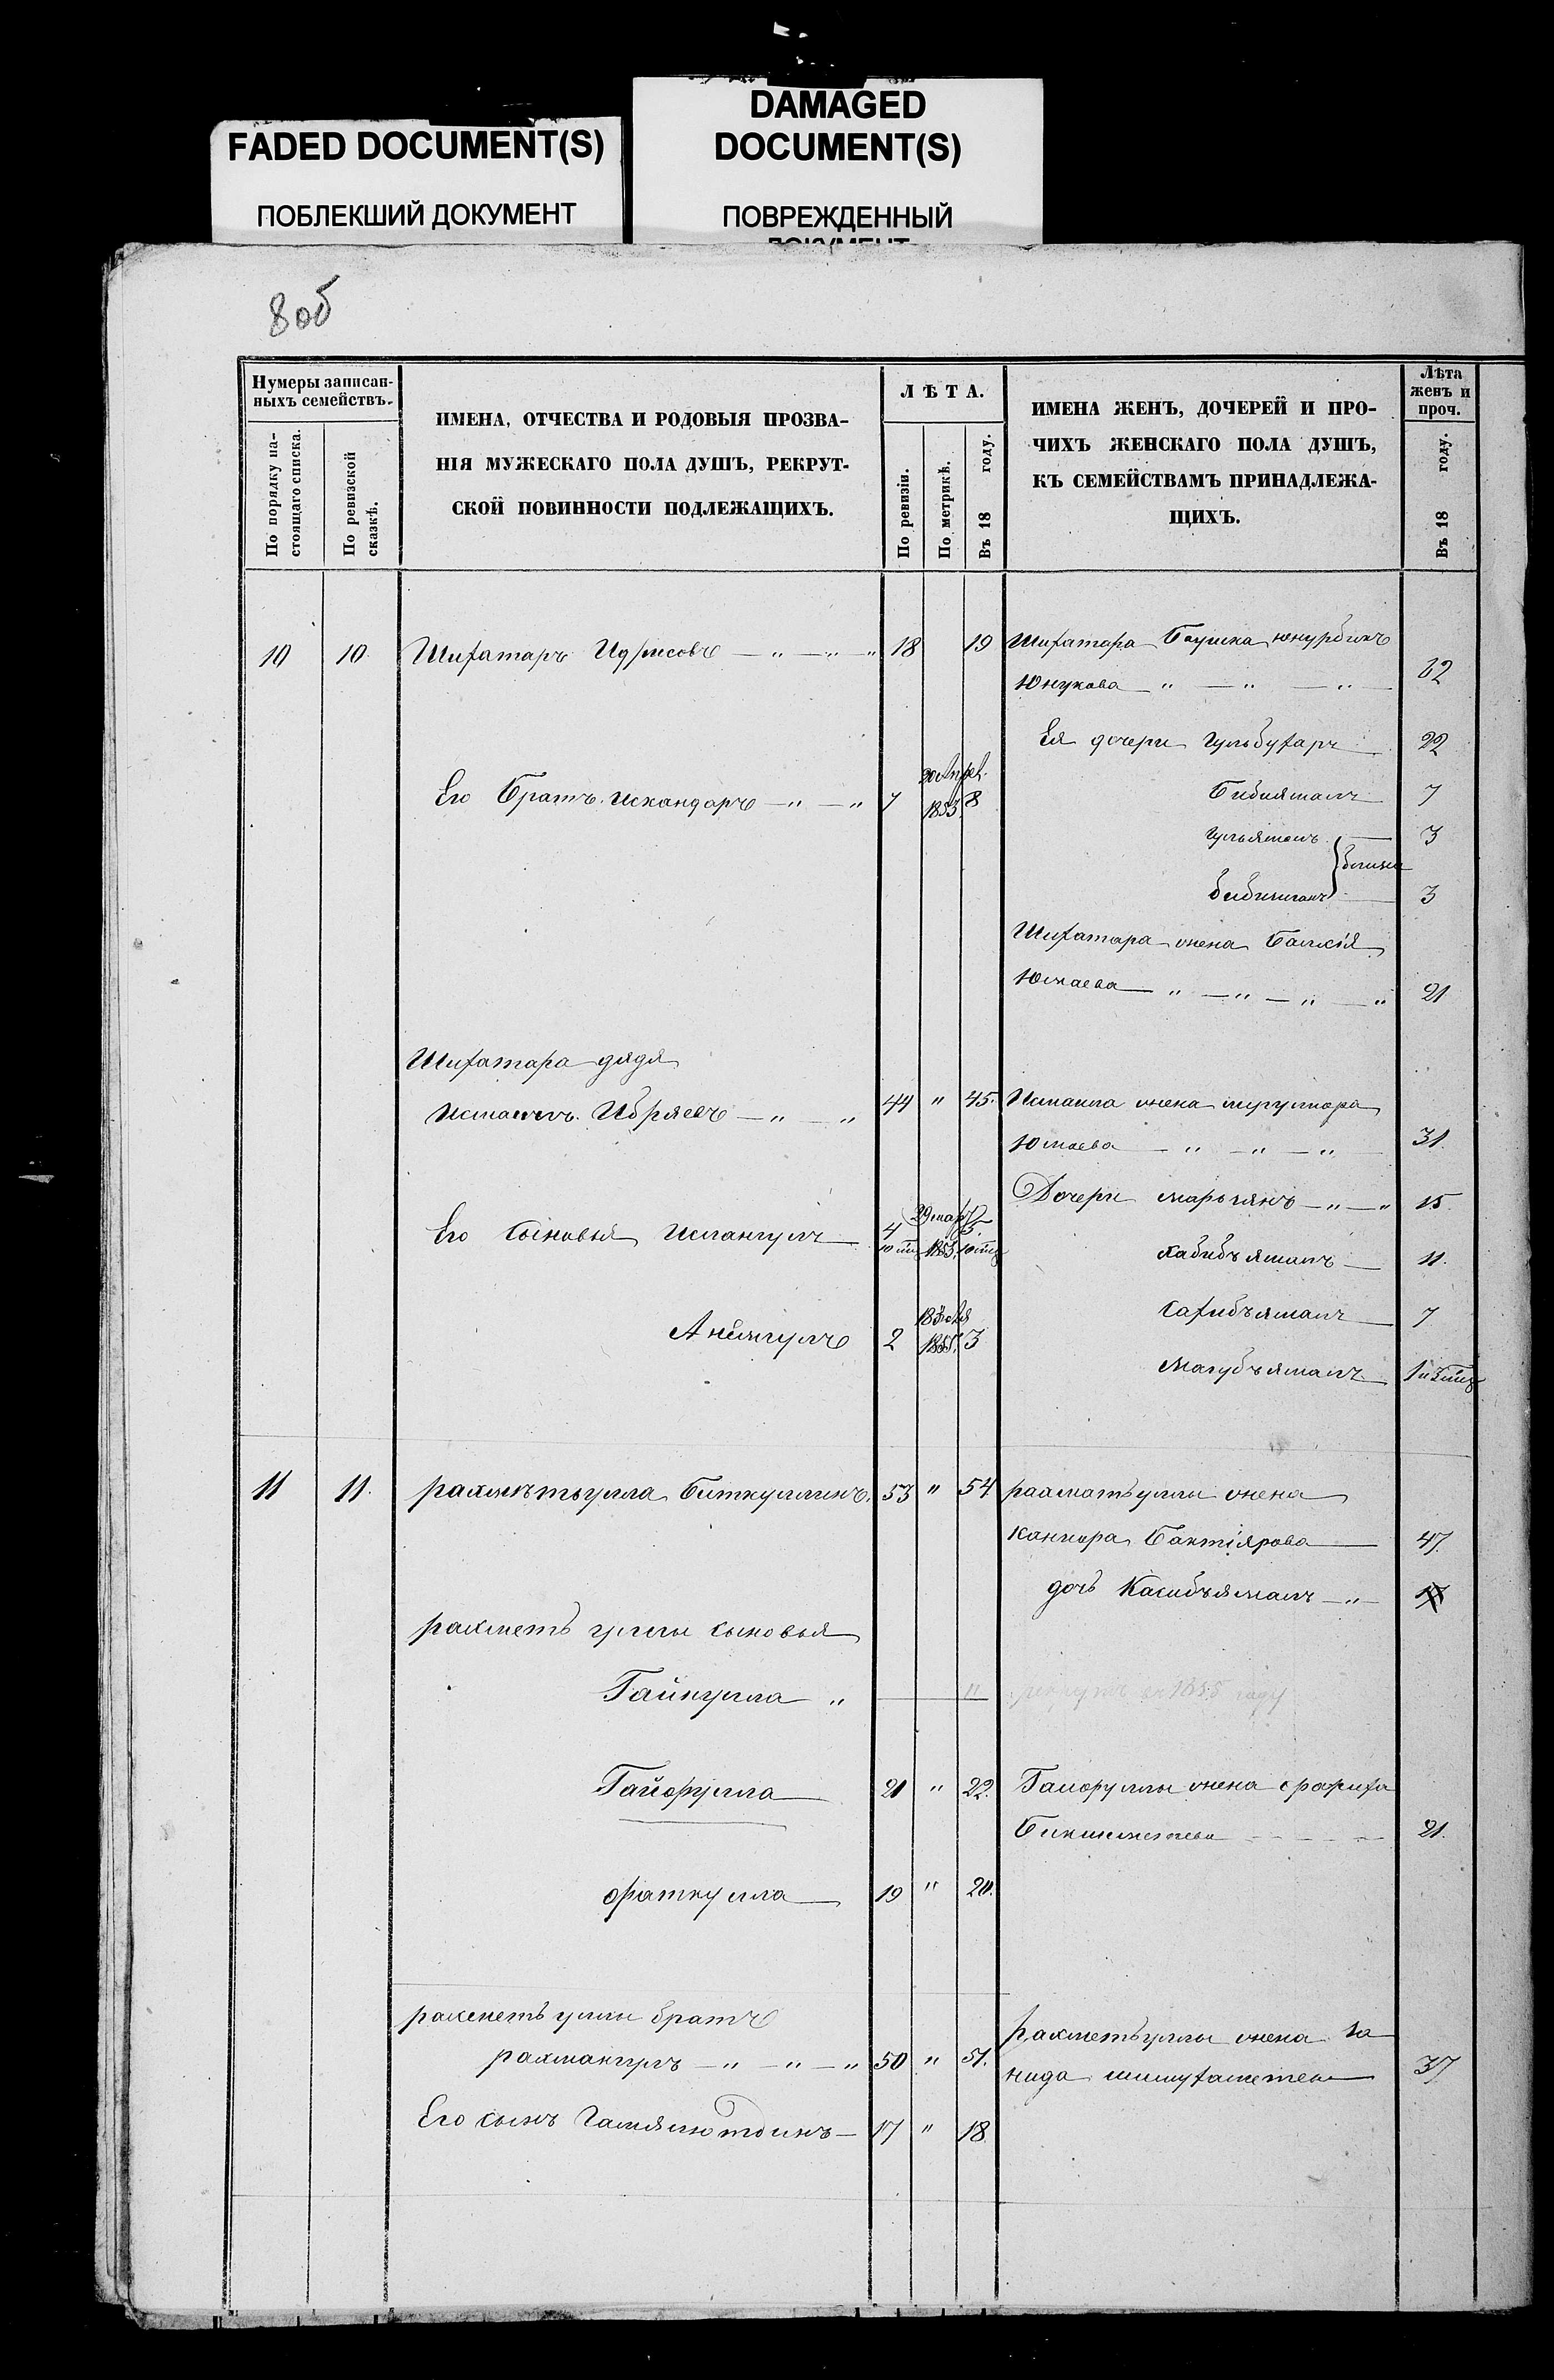 FADED DOCUMENT(S)
ПОБЛЕКШИЙ ДОКУМЕНТ
DAMAGED
DOCUMENT(S)
ПОВРЕЖДЕННЫЙ
ДОКУМЕНТ
8 об
Нумеры записан-
ныхъ семействъ.
По порядку на-
стоящаго списка.
По ревизской
сказкѣ.
ИМЕНА, ОТЧЕСТВА И РОДОВЫЯ ПРОЗВА-
НІЯ МУЖЕСКАГО ПОЛА ДУШЪ, РЕКРУТ-
СКОЙ ПОВИННОСТИ ПОДЛЕЖАЩИХЪ.
ЛѢТА.
По ревизіи.
По метрикѣ.
Въ 18 году.
ИМЕНА ЖЕНЪ, ДОЧЕРЕЙ И ПРО-
ЧИХЪ ЖЕНСКАГО ПОЛА ДУШЪ,
КЪ СЕМЕЙСТВАМЪ ПРИНАДЛЕЖА-
ЩИХЪ.
Лѣта
женъ и
проч.
Въ 18 году.
10 10. Шифатаръ Идрисовъ — " — " — " 18 19 Шифатара
Юнукова — " — " — " —
Ея дочери 22
Его Братъ Искандаръ — " — " 7 20 Апрѣл. 1853 8 Бибиямалъ 7
Гульямалъ 3
близн
3
Шифатара жена
Юмаева — " — " — " — " 21
Шифатара дядя
Исмаилъ Ибряевъ — " — " 44 " 45. Исмаила жена
Юмаева — " — " — " 31.
Дочери Марьямъ — " — " 15.
Его Сыновья Исмангулъ 4 29 мар 1853. 5. Хабибъямалъ — 11.
2 1855. 3 Сахибъямалъ 7
Магубъямалъ
11 11. рахметьулла Биткуллинъ. 53 " 54 рахматьуллы жена
Бактіярова 47.
дочь Касибъямалъ — " —
рахметь уллы сыновья
Гайнулла " " рекрутъ въ 1855 году
Гайфулла 21 " 22. Гайфуллы жена
21.
Фаткулла 19 " 20.
рахметь уллы братъ
рахмангулъ — " — " — " 50 " 51. рахметьуллы жена
37
Его сынъ 17 " 18